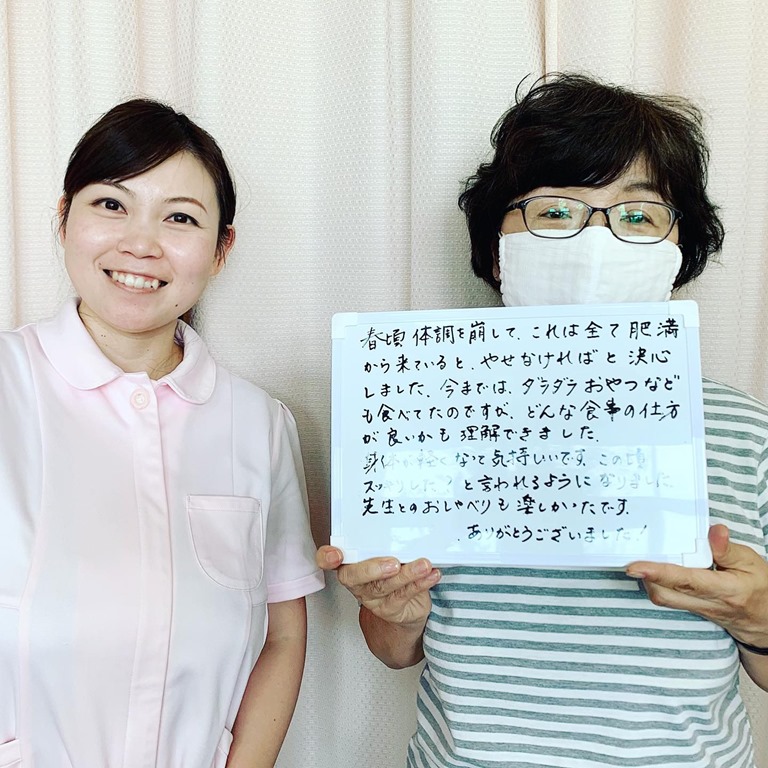 春頃 体調を崩して、これは全て肥満
から来ていると、やせなければと決心
しました。今までは、ダラダラおやつなど
も食べてたのですが、どんな食事の仕方
が良いかも理解できました。
身体が軽くなって気持しいいです。この頃
スッキリした?と言われるようになりました。
先生とのおしゃべりも楽しかったです。
ありがとうございました!